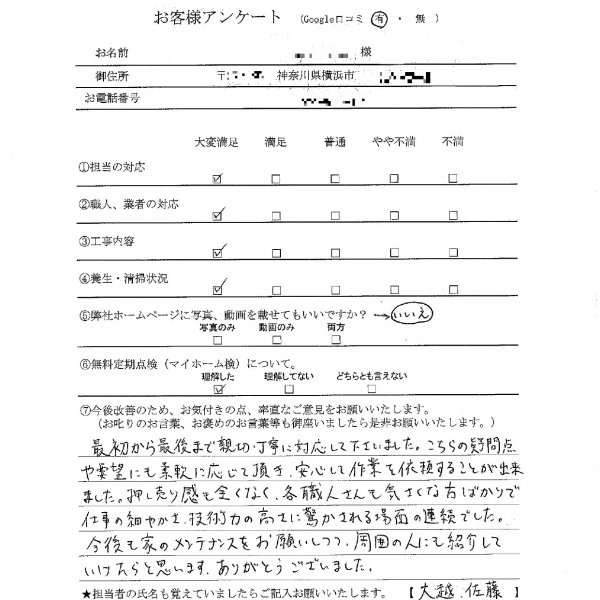 お客様アンケート (Google口コミ 有 ・ 無 )
お名前 様
御住所 〒 神奈川県横浜市
お電話番号
大変満足 満足 普通 やや不満 不満
①担当の対応
②職人、業者の対応
③工事内容
④養生・清掃状況
⑤弊社ホームページに写真、動画を載せてもいいですか? →いいえ
写真のみ 動画のみ 両方
⑥無料定期点検(マイホーム検)について。
理解した 理解してない どちらとも言えない
⑦今後改善のため、お気付きの点、率直なご意見をお願いいたします。
(お叱りのお言葉、お褒めのお言葉等も御座いましたら是非お願いします。)
最初から最後まで親切、丁寧に対応して下さいました。こちらの疑問点
や要望にも柔軟に応じて頂き、安心して作業を依頼することが出来
ました。押し売り感も全くなく、各職人さんも気さくな方ばかりで
仕事の細やかさ、技術力の高さに驚かされる場面の連続でした。
今後も家のメンテナンスをお願いしつつ、周囲の人にも紹介して
いけたらと思います。ありがとうございました。
★担当者の氏名も覚えていましたらご記入お願いします。 【 大越、佐藤 】